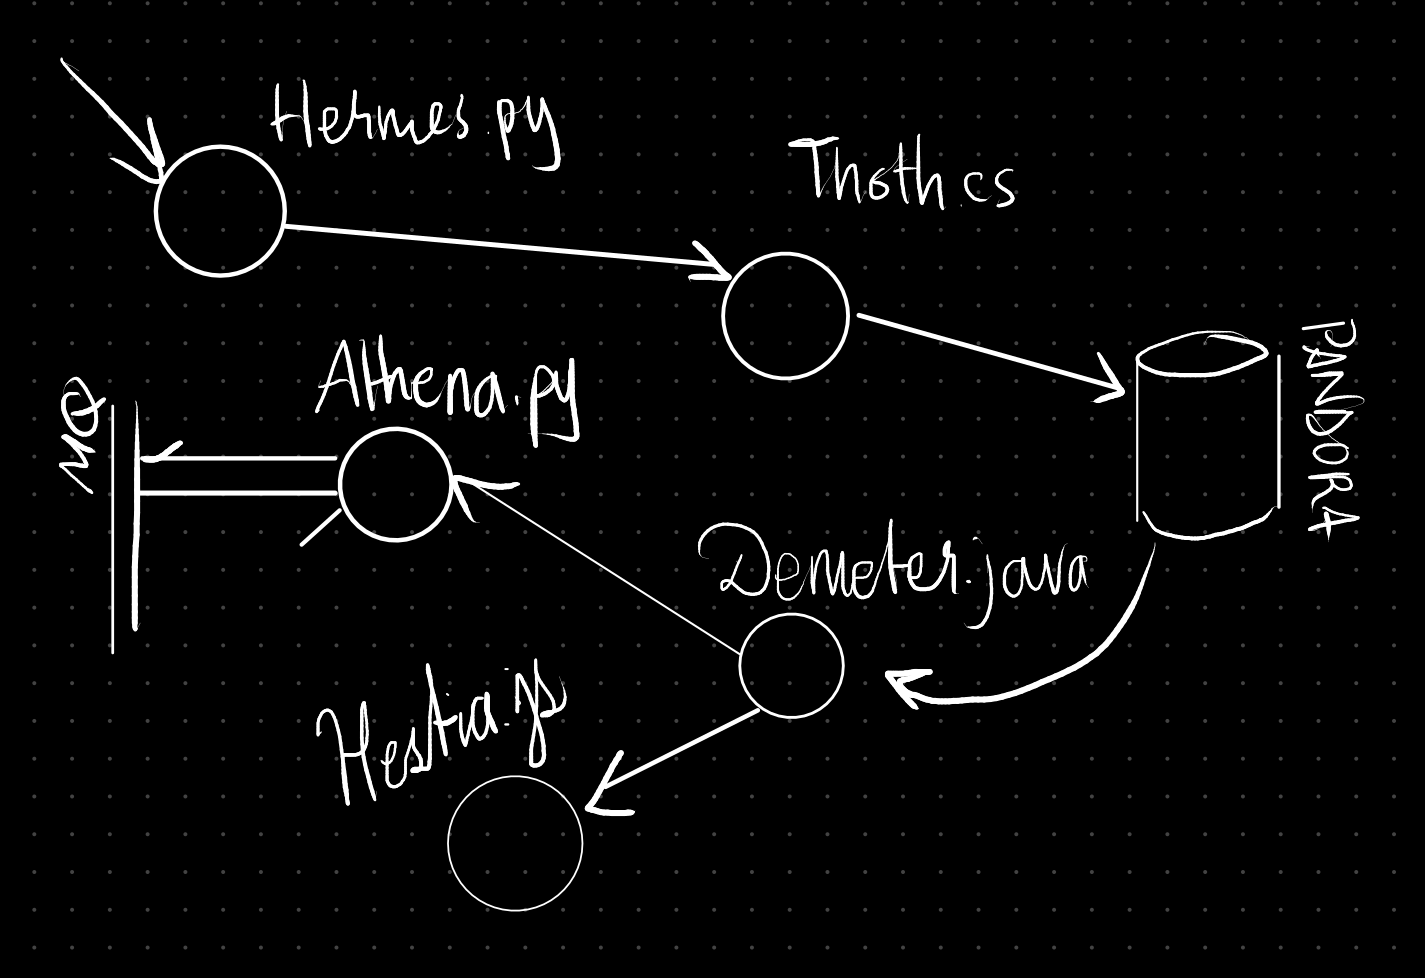 Hermes.py
Thoth.cs
PANDORA
Athena.py
MQ
Demeter.java
Hestia.js